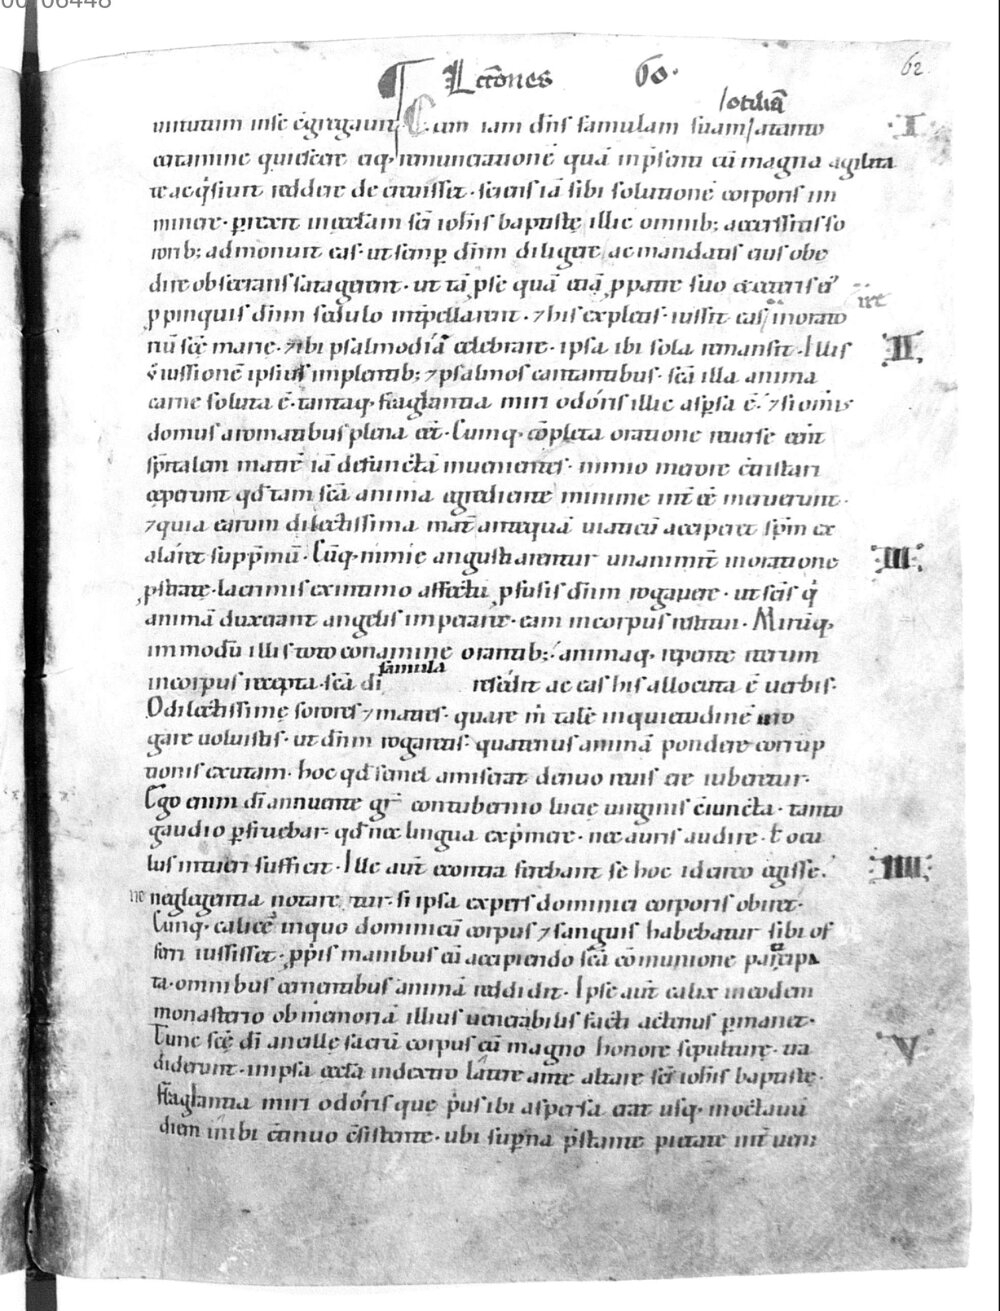 00706448
62
Lcc̄ones 60.
/otiliā
uirtutum inse c̄gregauit. Cum iam dn̄s famulam suam/atanto I
certamine quiescere eiq; remunerationē quā inp̄senti cū magna agilita
te acq̇siuit reddere decreuisset. sciens iā sibi solutionē corporis im
minere. p̱rexit inęccl̄am sc̄i ioh̄is baptistę illic omnib; accersitis so
rorib; admonuit eas. ut semp̱ dn̄m diligere ac mandatis eius obe
dire obsecrans satagerent. ut tā p̱ se quā etiā p̱ patre suo
p̱pinquis dn̄m sedulo interpellarent. ⁊ his expletis. iussit eas inorato ire
riū sc̄ę marię. ⁊ ibi psalmodiā celebrare. ipsa ibi sola remansit. Illis II
iussionē ipsius implentib; ⁊ psalmos cantantibus. sc̄a illa anima
carne soluta ē. tantaq; fraglantia miri odoris illic asp̱sa ē. ⁊ si om̄is
domus aromatibus plena eēt. Cumq; cōpleta oratione reuersę eēnt
sp̄italem matrē iā defunctā inuenientes. nimio merore c̄tristari
ceperunt qđ tam sc̄a anima egrediente minime int̄ eē meruerunt.
⁊ quia earum dilectissima mat̄ antequā uiaticū acciperet sp̄m ex
alaret supp̄mū. Cūq; nimie angustiarentur unanimit̄ inoratione III
p̱stratę. lacrimis exintimo affectu p̱fusis dn̄m rogauere. ut sc̄is q̇
animā duxerant angelis imperaret. eam incorpus restitui. Mirūq;
inmodū illis toto conamine orantib; animaq; repente iterum
famula
incorpus recepta. sc̄a dī resedit ac eas his allocuta ē uerbis.
O dilectissimę sorores ⁊ matres. quare m̄ talē inquietudinē irro
gare uoluistis. ut dn̄m rogaretis. quatenus animā pondere corrup
tionis exutam. hoc qđ semel amiserat denuo reuisere iuberetur.
Ego enim dī annuente gr̄a contubernio lucię uirginis c̄iuncta. tanto
gaudio p̱fruebar. qđ nec lingua exp̄mere. nec auris audire. ł ocu
lus intueri sufficeret. Ille aut̄ econtra ferebant se hoc ideirco egisse. IIII
ne neglegentia notare tur. si ipsa expers dominici corporis obiret.
Cumq; calicē inquo dominicū corpus ⁊ sanguis habebatur sibi of
ferri iussisset. p̱p̄is manibus eū accipiendo sc̄a cōmunione particpa
ta. omnibus cernentibus animā reddidit. Ipse aut̄ calix ineodem
monasterio ob memoriā illius uenerabilis facti actenus p̱manet.
Tunc sc̄ę dī ancillę sacrū corpus cū magno honore sepulturę. tra V
diderunt. inipsa ęccl̄a indextro latere ante altare sc̄i ioh̄is baptistę.
fraglantia miri odoris que p̄us ibi aspersa erat usq; inoctauū
diem inibi c̄tinuo c̄sistente. ubi sup̱na p̄stante pietate int̄ueni